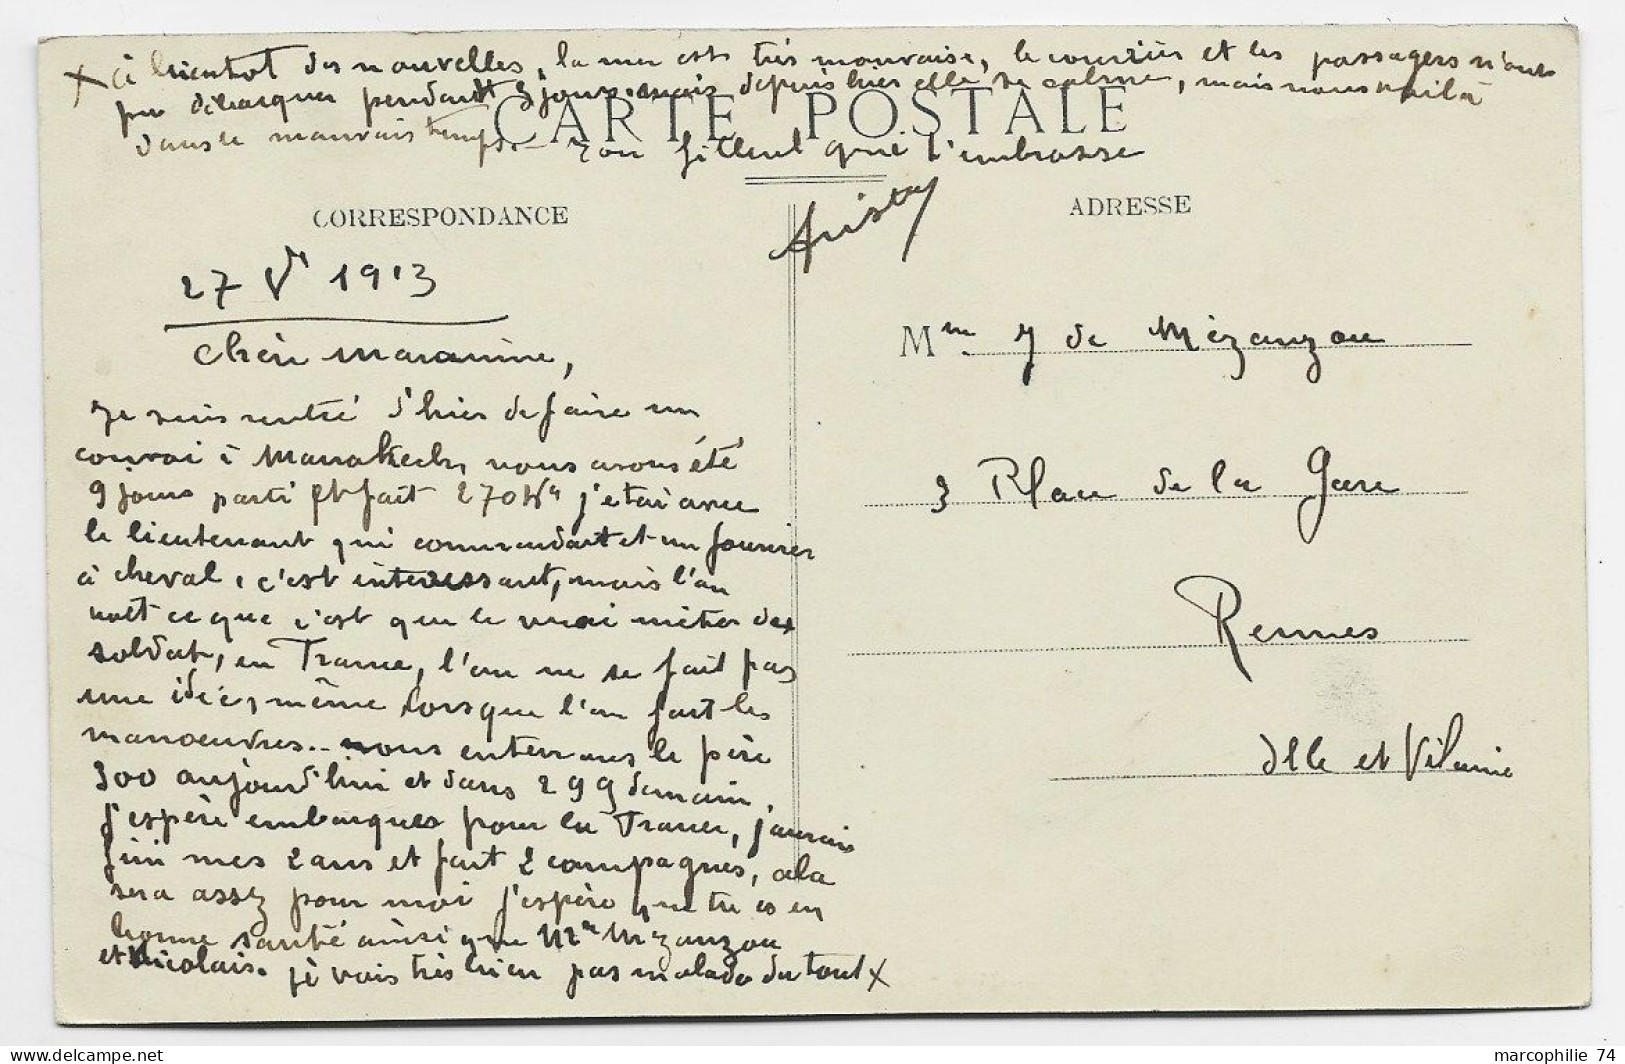 x à bientot des nouvelles, la mer est très mauvaise, le courrier et les passagers n'ont
pu débarquer pendant 3 jours mais depuis hier elle se calme, mais nous voilà
dans le mauvais temps. Ton filleul qui t'embrasse
CARTE POSTALE
Aristay
CORRESPONDANCE
ADRESSE
27 Vr 1913
Chère marraine,
Je suis rentré d'hier de faire un
convoi à Marrakech, nous avons été
9 jours parti et fait 270 Km j'etai avec
le lieutenant qui commandait et un fourrier
à cheval, c'est interessant, mais l'on
voit ce que c'est que le vrai métier de
soldat, en France, l'on ne se fait pas
une idée, même lorsque l'on fait les
manoeuvres.. nous enterrons le père
300 aujourd'hui et dans 299 demain,
j'espère embarquer pour la France, j'aurais
fini mes 2 ans et fait 2 campagnes, cela
sera assez pour moi j'espère que tu es en
bonne santé ainsi que Mr Mézanzou
et Nicolais. je vais très bien pas malade du tout x
Mme Y de Mézanzou
3 Place de la Gare
Rennes
Ille et Vilaine
marcophilie 74